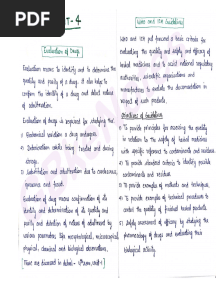 PDF
- 4
Evaluation of Drugs
Evaluation means to identify and to determine the
quality and purity of a drug. It also help to
confirm the identity of a drug and detect nature
of adulteration.
Evaluation of drugs is required for studying the
1) Biochemical variation in drug
2) Deterioration while being treated and during
storage.
3) Substitution and adulteration due to carelessness,
ignorance and fraud.
Evaluation of drug means confirmation of its
identity and determination of its quality
and purity and detection of nature of adulterant by
various parameters like morphological, microscopical,
physical, chemical and biological observations.
WHO and ICH Guidelines
WHO and ICH put forward a basic criteria for
evaluating the quality and safety and efficacy of
herbal medicines and to assist national regulatory
authorities, scientific organisations and
manufacturing to evaluate the documentation in
respect of such products.
Objectives of Guidelines
1) To provide principles for assessing the quality
in relation to the safety of herbal medicines
with specific reference to contaminants and residues.
2) To provide standard criteria to identify possible
contaminants and residues.
3) To provide examples of methods and techniques.
4) To provide examples of technical procedures to
control the quality of finished herbal products.
5) Safety assessment of efficacy by studying the
pharmacology of drugs and evaluating their
biological activity.